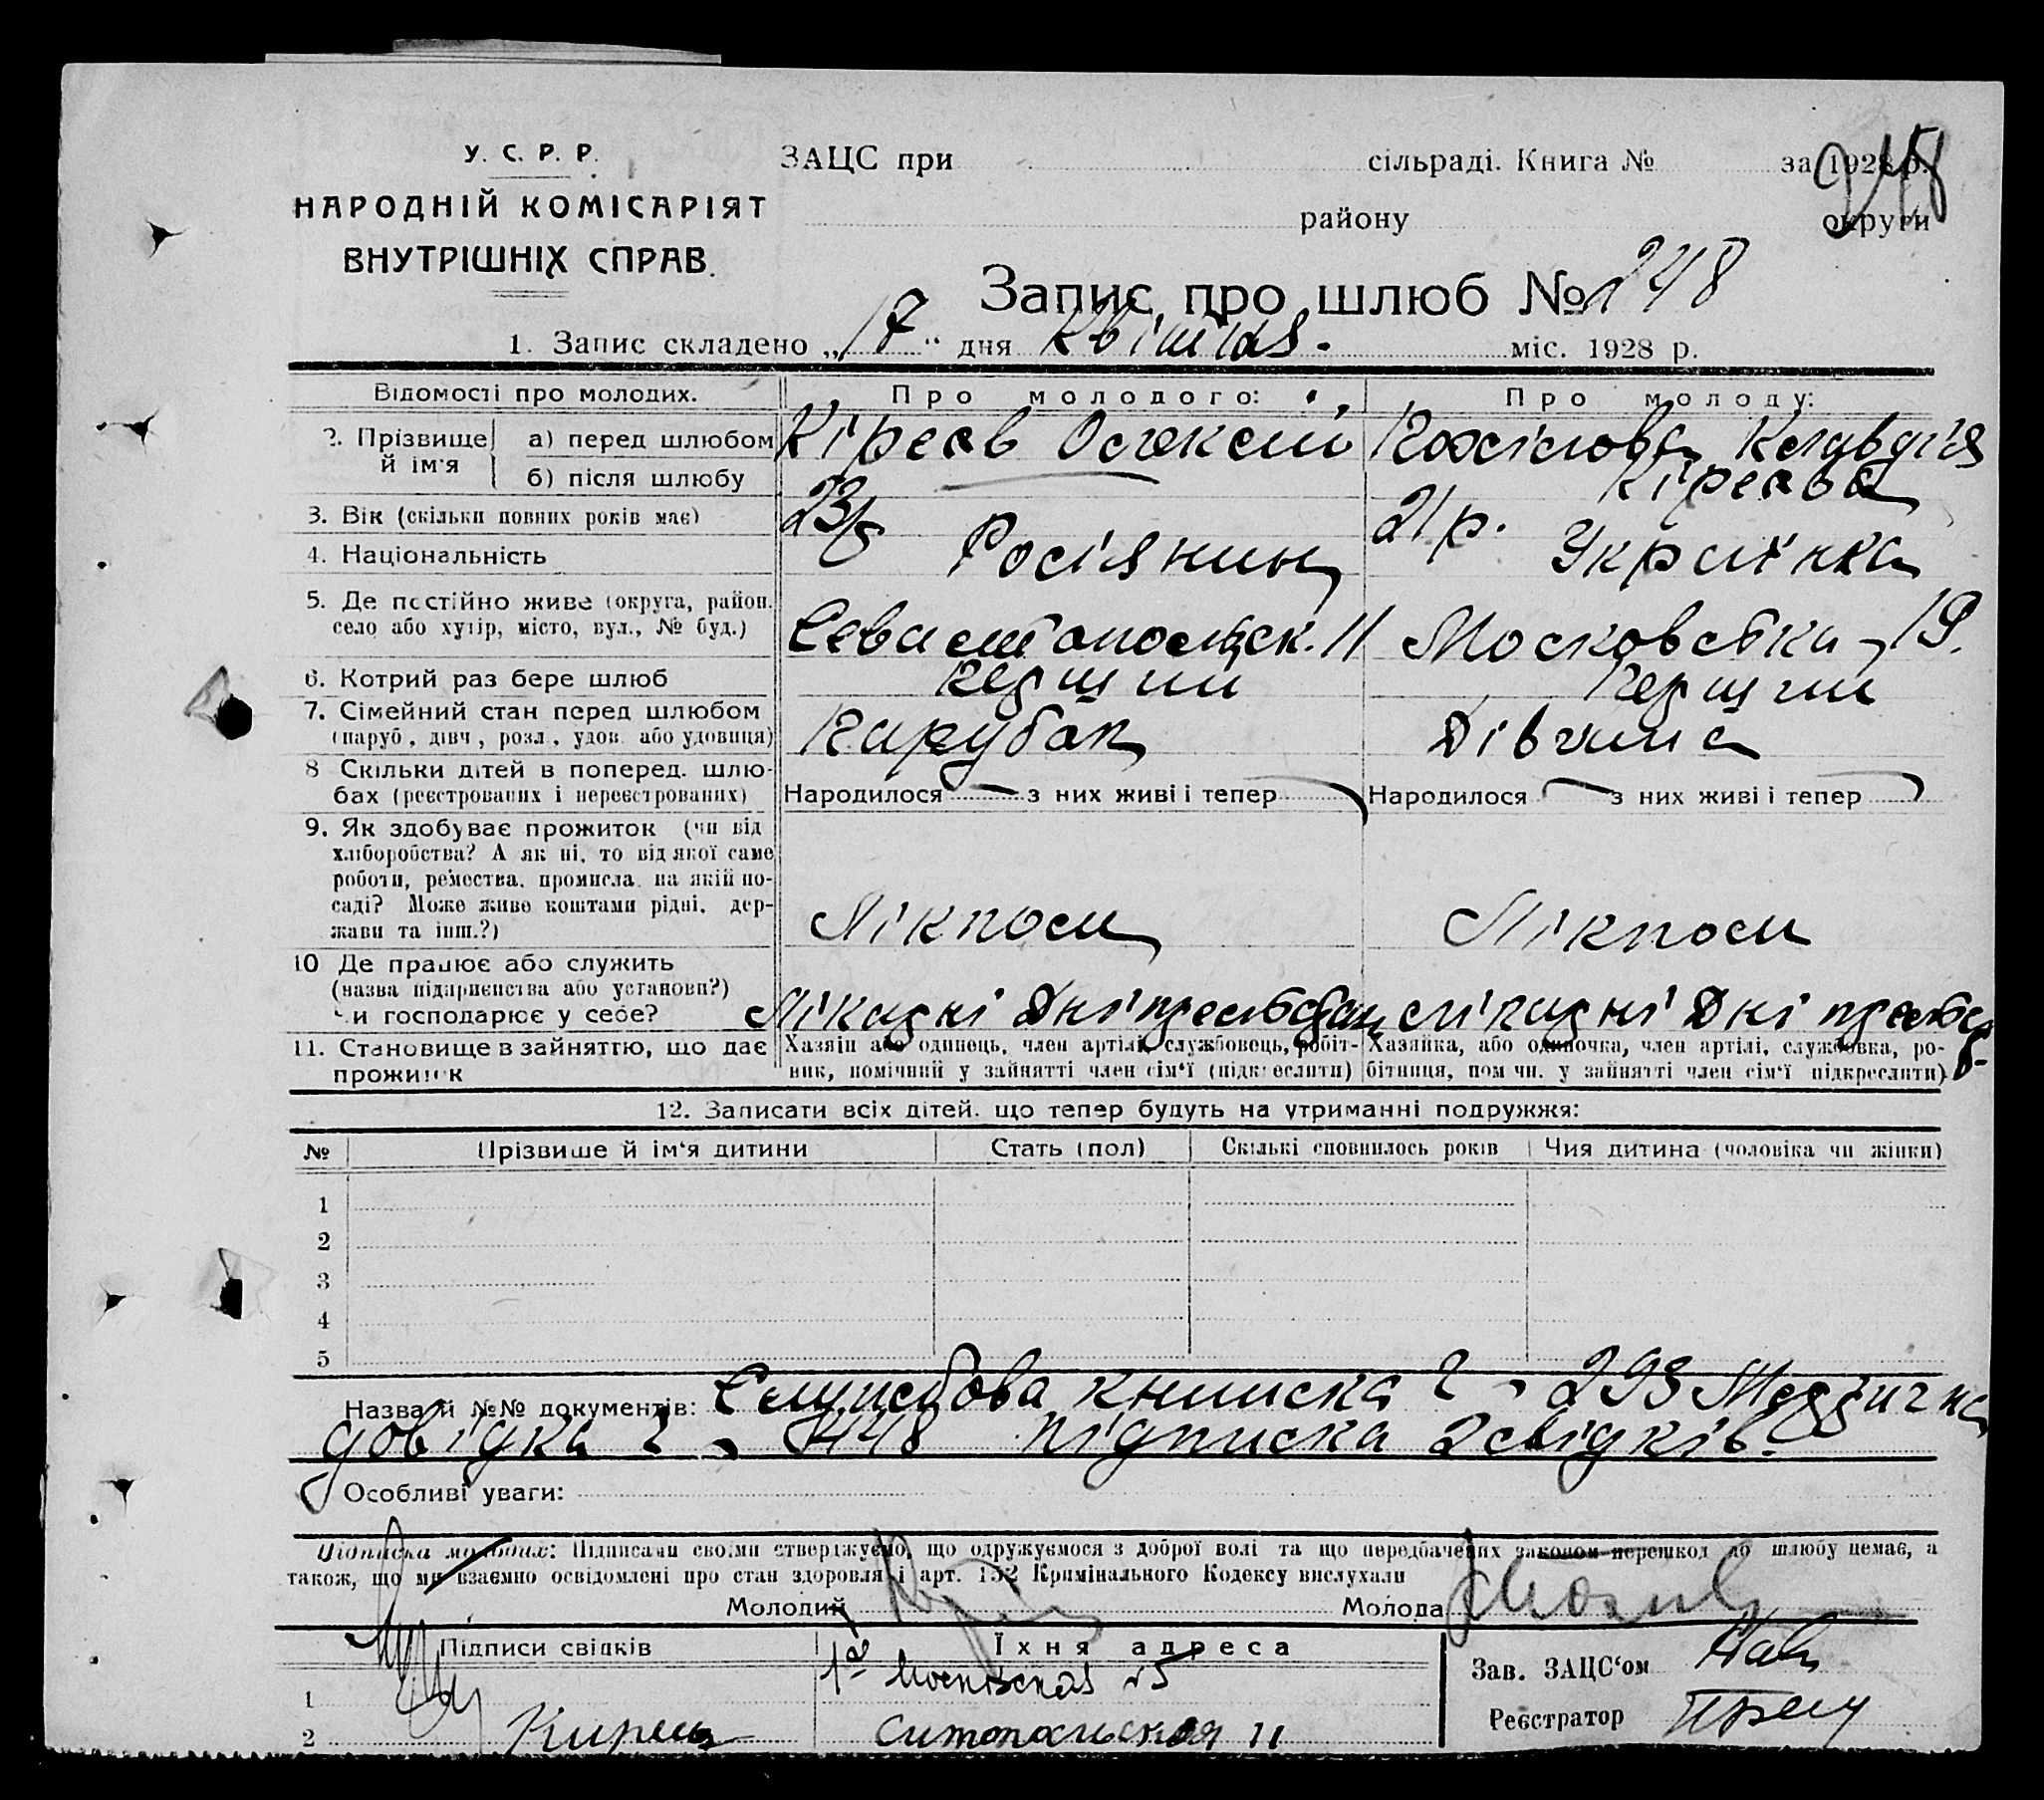 248
У. С. Р. Р.
НАРОДНІЙ КОМІСАРІЯТ
ВНУТРІШНІХ СПРАВ.
ЗАЦС при сільраді. Книга № за 1928 р.
району округи
Запис про шлюб № 248
1. Запис складено „17“ дня Квітня міс. 1928 р.
Відомості про молодих. Про молодого: Про молоду:
2. Прізвище й ім'я а) перед шлюбом Кіреєв Олексій Клавдія
б) після шлюбу Кіреєва
3. Вік (скільки повних років має) 23 21 р.
4. Національність Росіянин Українка
5. Де постійно живе (округа, район, село або хутір, місто, вул., № буд.) Севастопольск. 11 Московська 19.
6. Котрий раз бере шлюб Перший Перший
7. Сімейний стан перед шлюбом (паруб., дівч., розл., удов. або удовиця) Парубак Дівчина
8 Скільки дітей в поперед. шлюбах (реєстрованих і нереєстрованих) Народилося — з них живі і тепер — Народилося — з них живі і тепер —
9. Як здобуває прожиток (чи від хліборобства? А як ні, то від якої саме роботи, ремества, промисла, на якій посаді? Може живе коштами рідні, держави та інш.?) Лікпом Лікпом
10 Де працює або служить (назва підприємства або установи?) Чи господарює у себе? Лікарні лікарні
11. Становище в зайняттю, що дає прожиток Хазяїн або одинець, член артілі, службовець, робітник, помічний у зайнятті член сім'ї (підкреслити) Хазяйка, або одиночка, член артілі, службовка, робітниця, помічн. у зайнятті член сім'ї підкреслити)
12. Записати всіх дітей, що тепер будуть на утриманні подружжя:
№ Прізвище й ім'я дитини Стать (пол) Скількі сповнилось років Чия дитина (чоловіка чи жінки)
1
2
3
4
5
Назва й №№ документів: Службова книжка ч. 293 Медична
довідка ч. підписка 2 свідків.
Особливі уваги:
Підписка молодих: Підписами своїми стверджуємо, що одружуємося з доброї волі та що передбачених законом перешкод до шлюбу немає, а
також, що ми взаємно освідомлені про стан здоровля і арт. 152 Кримінального Кодексу вислухали
Молодий Молода
Підписи свідків Їхня адреса
Зав. ЗАЦС'ом
1 1я Московская 5
Реєстратор
2 11